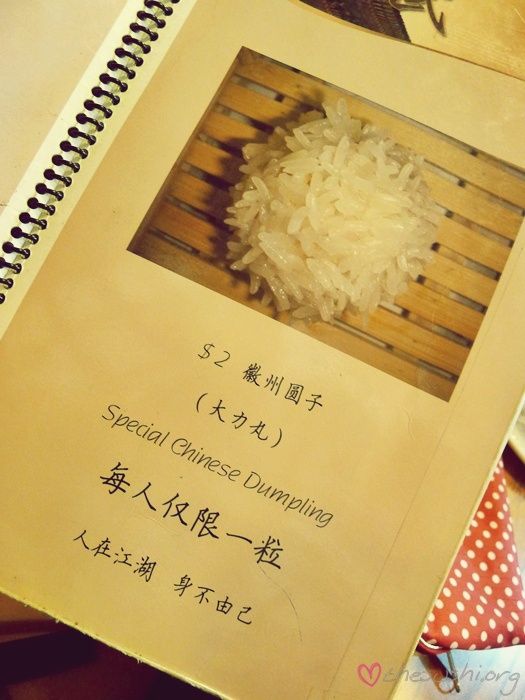 $2 徽州圆子
(大力丸)
Special Chinese Dumpling
每人仅限一粒
人在江湖 身不由己
thesushi.org